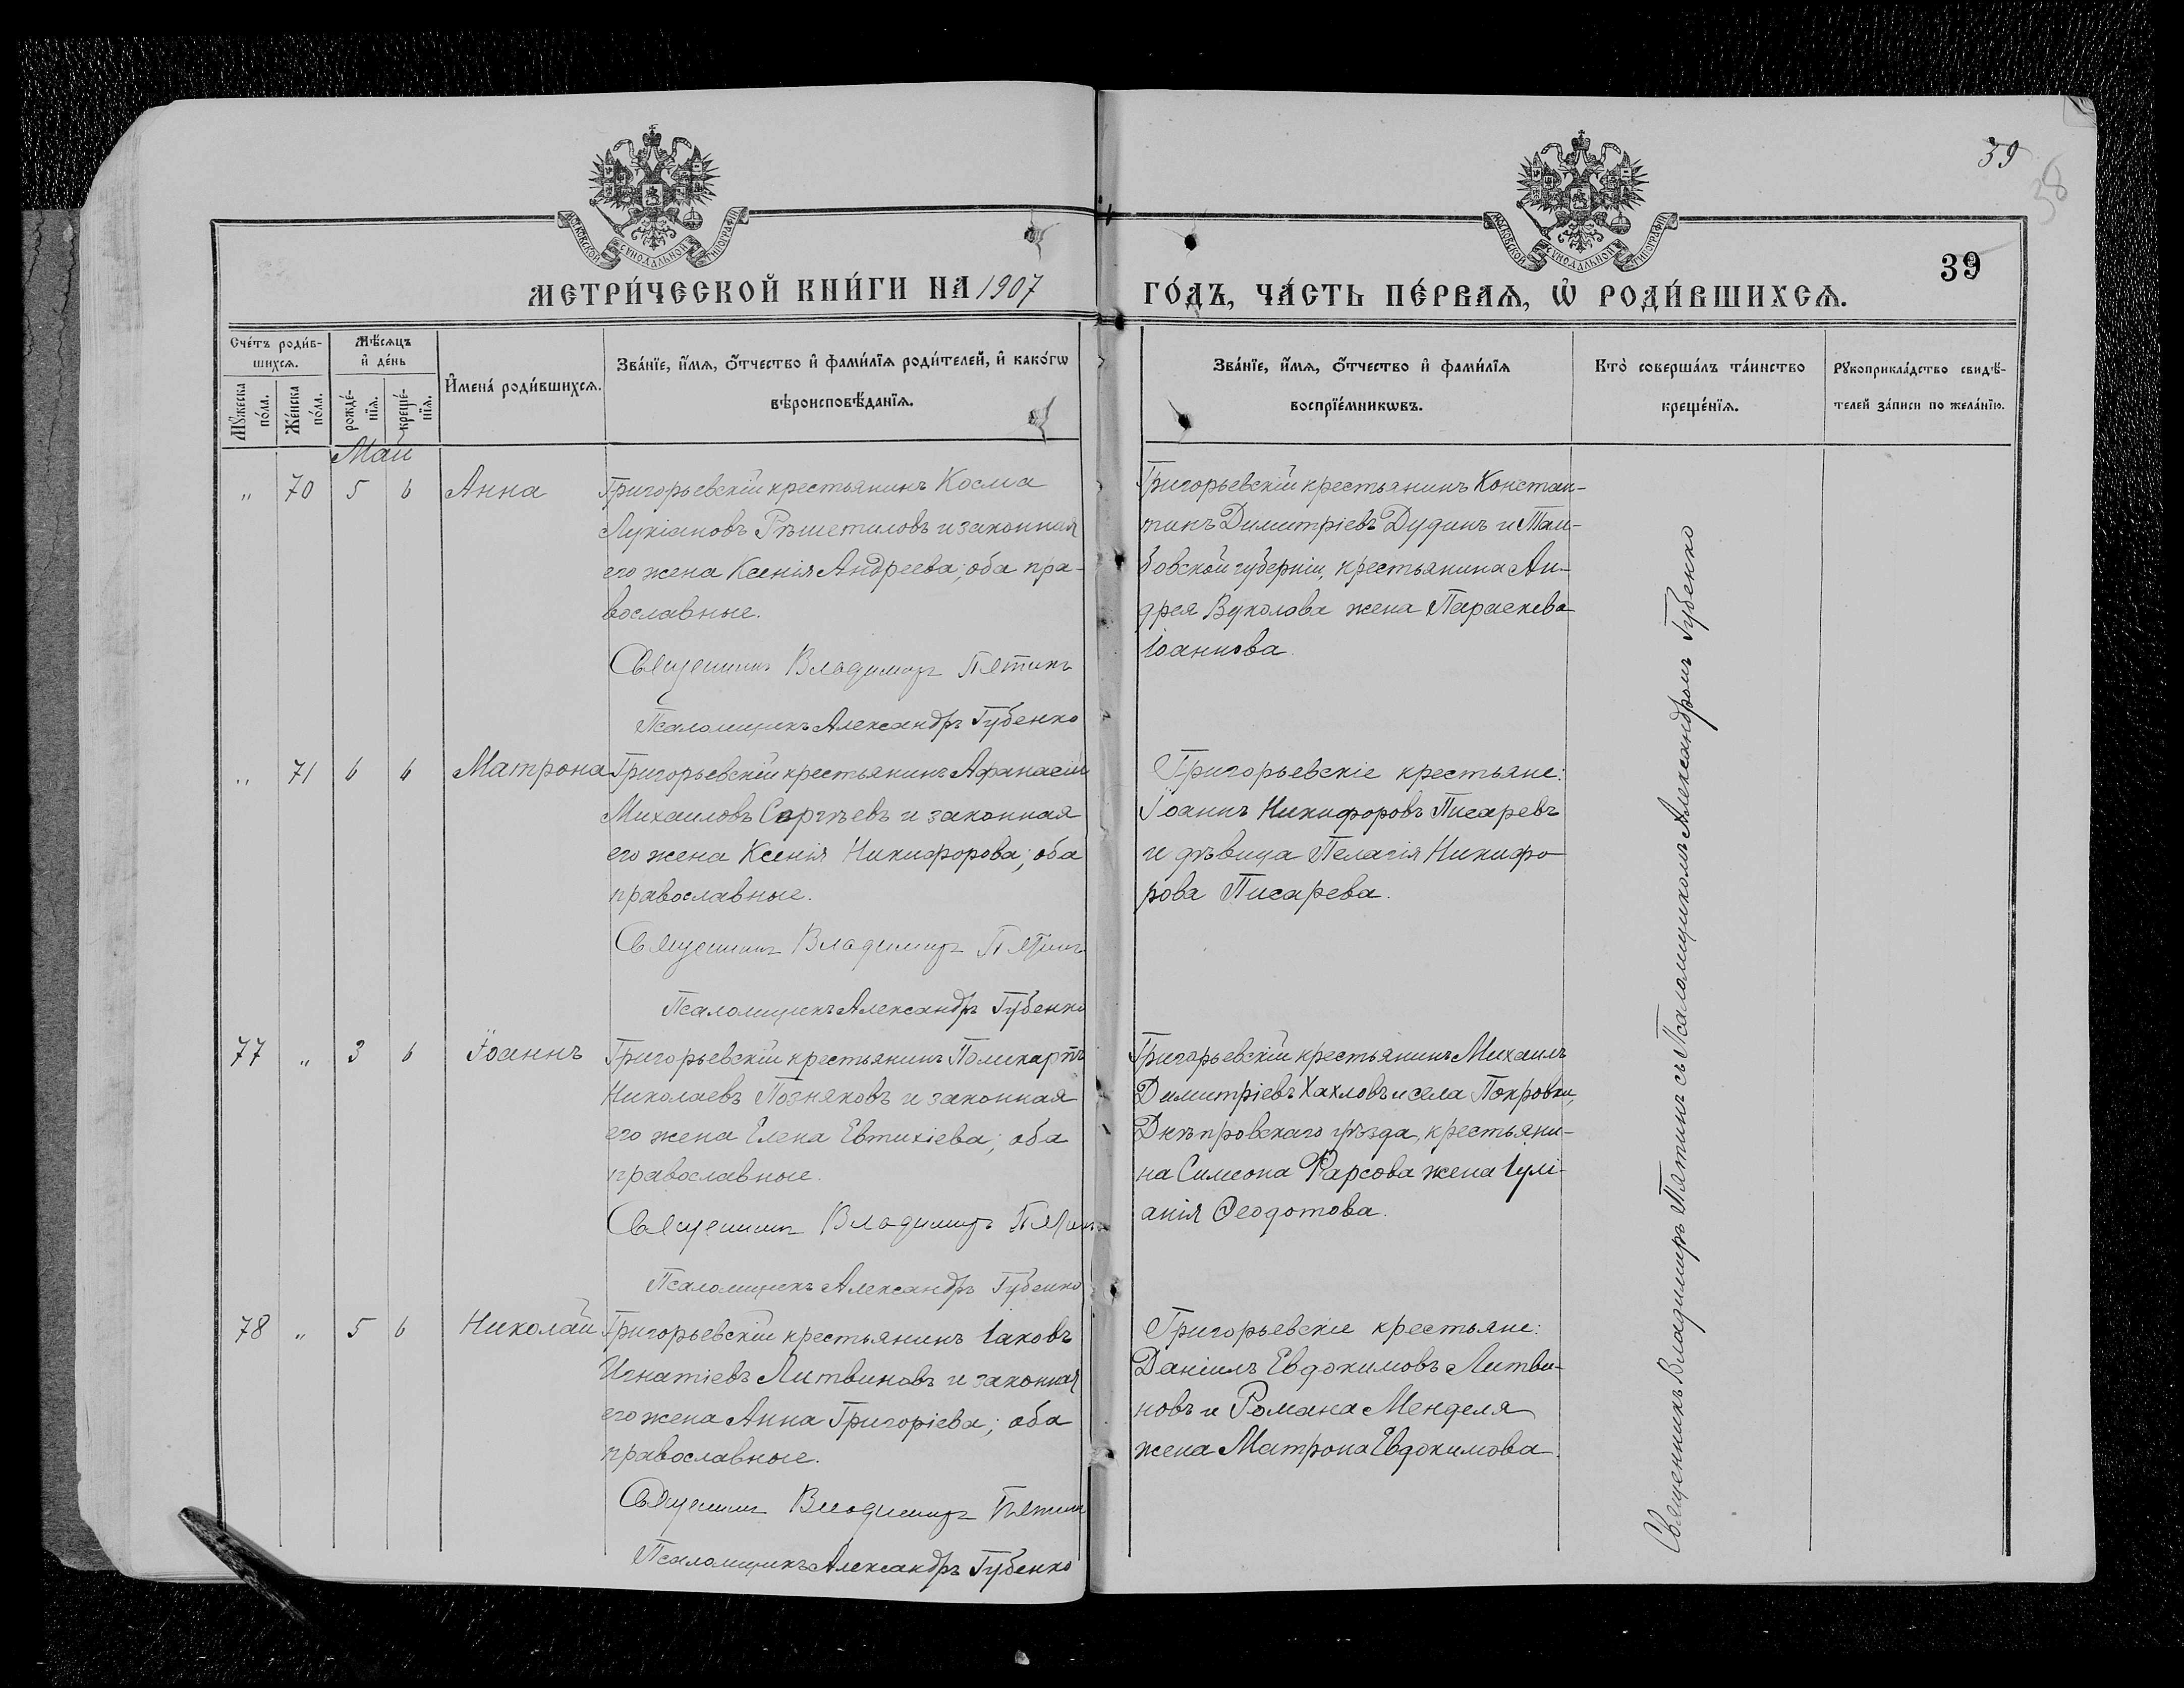 39
38
39
МОСКОВСКОЙ СѴНОДАЛЬНОЙ ТИПОГРАФІИ
МОСКОВСКОЙ СѴНОДАЛЬНОЙ ТИПОГРАФІИ
МЕТРИ́ЧЕСКОЙ КНИ́ГИ НА 1907
ГО́ДЪ, ЧА́СТЬ ПЕ́РВАѦ, Ѡ҆ РОДИ́ВШИХСѦ.
Сче́тъ роди́в-
шихсѧ.
Мꙋ́жеска по́ла.
Же́нска по́ла.
Мѣ́сѧцъ
и҆ де́нь
рожде́-
нїѧ.
креще́-
нїѧ.
И҆мена̀ роди́вшихсѧ.
Зва́нїе, и҆́мѧ, о҆́тчество и҆ фами́лїѧ роди́телей, и҆ како́гѡ
вѣроисповѣ́данїѧ.
Зва́нїе, и҆́мѧ, о҆́тчество и҆ фами́лїѧ
воспрїе́мникѡвъ.
Кто̀ соверша́лъ та́инство
креще́нїѧ.
Рꙋкоприкла́дство свидѣ́-
телей за́писи по жела́нїю.
Май
" 70 5 6 Анна
Григорьевскій крестьянинъ Косма
Лукіановъ Рѣшетиловъ и законная
его жена Ксенія Андреева; оба пра-
вославные.
Священникъ Владимиръ Пятинъ
Псаломщикъ Александръ Губенко
Григорьевскій крестьянинъ Констан-
тинъ Димитріевъ Дудинъ и Там-
бовской губерніи, крестьянина Ан-
дрея Вуколова жена Параскева
Іоаннова.
" 71 6 6 Матрона
Григорьевскій крестьянинъ Афанасій
Михаиловъ Сергѣевъ и законная
его жена Ксенія Никифорова; оба
православные.
Священникъ Владимиръ Пятинъ
Псаломщикъ Александръ Губенко
Григорьевскіе крестьяне:
Іоаннъ Никифоровъ Писаревъ
и дѣвица Пелагія Никифо-
рова Писарева.
77 " 3 6 Іоаннъ
Григорьевскій крестьянинъ Поликарпъ
Николаевъ Позняковъ и законная
его жена Елена Евтихіева; оба
православные.
Священникъ Владимиръ Пятинъ
Псаломщикъ Александръ Губенко
Григорьевскій крестьянинъ Михаилъ
Димитріевъ Хахловъ и села Покровки,
Днѣпровскаго уѣзда, крестьяни-
на Симеона Фарсова жена Іулі-
анія Ѳеодотова.
78 " 5 6 Николай
Григорьевскій крестьянинъ Іаковъ
Игнатіевъ Литвиновъ и законная
его жена Анна Григоріева; оба
православные.
Священникъ Владимиръ Пятинъ
Псаломщикъ Александръ Губенко
Григорьевскіе крестьяне:
Даніилъ Евдокимовъ Литви-
новъ и Романа Менделя
жена Матрона Евдокимова.
Священникъ Владимиръ Пятинъ съ Псаломщикомъ Александромъ Губенко